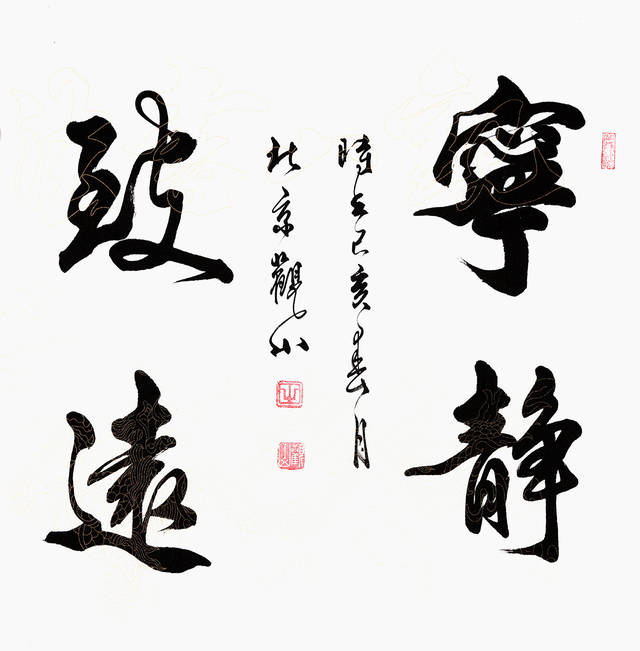 寧静
致遠
時在己亥春月
北京觀山